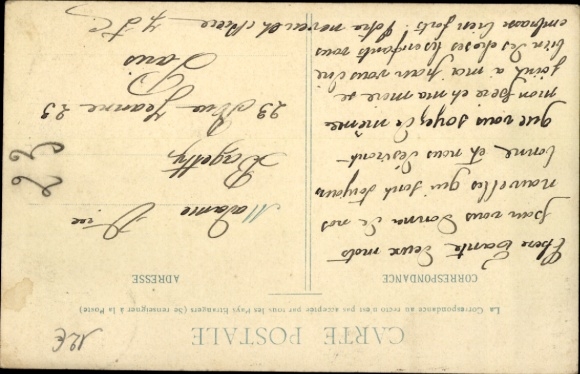 CARTE POSTALE
La Correspondance au recto n'est pas acceptée par tous les Pays Étrangers (Se renseigner à la Poste)
CORRESPONDANCE
Chère Tante deux mots
pour vous donner de nos
nouvelles qui sont toujours
bonne et nous désirons
que vous soyez de même
mon père et ma mère se
joint a moi pour vous dire
bien des choses les enfants vous
embrasse bien fort. Votre neveu et nièce
ADRESSE
Madame
Bagetty
23 Jeanne 23
Paris
23
12€